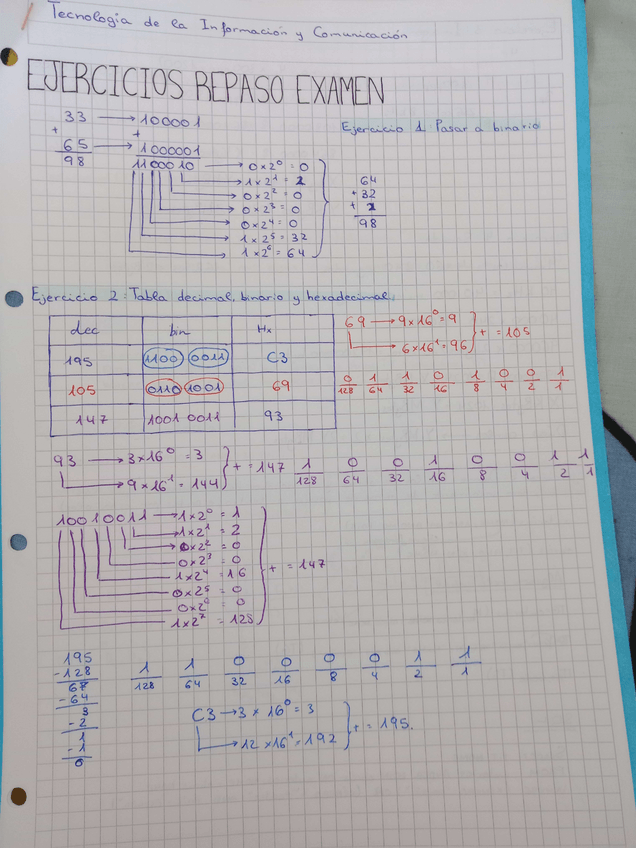 Tecnología de la Información y Comunicación
EJERCICIOS REPASO EXAMEN
Ejercicio 1 Pasar a binario
33 → 100001
+ +
65 → 1000001
98 1100010 → 0 x 2^0 = 0
1 x 2^1 = 2
0 x 2^2 = 0
0 x 2^3 = 0
0 x 2^4 = 0
1 x 2^5 = 32
1 x 2^6 = 64
64
+ 32
+ 2
98
Ejercicio 2: Tabla decimal, binario y hexadecimal.
dec bin Hx
195 1100 0011 C3
105 0110 1001 69
147 1001 0011 93
69 → 9 x 16^0 = 9
6 x 16^1 = 96
+ = 105
0 1 1 0 1 0 0 1
128 64 32 16 8 4 2 1
93 → 3 x 16^0 = 3
9 x 16^1 = 144
+ = 147
1 0 0 1 0 0 1 1
128 64 32 16 8 4 2 1
10010011 → 1 x 2^0 = 1
1 x 2^1 = 2
0 x 2^2 = 0
0 x 2^3 = 0
1 x 2^4 = 16
0 x 2^5 = 0
0 x 2^6 = 0
1 x 2^7 = 128
+ = 147
195
- 128
67
- 64
3
- 2
1
- 1
0
1 1 0 0 0 0 1 1
128 64 32 16 8 4 2 1
C3 → 3 x 16^0 = 3
12 x 16^1 = 192
+ = 195.